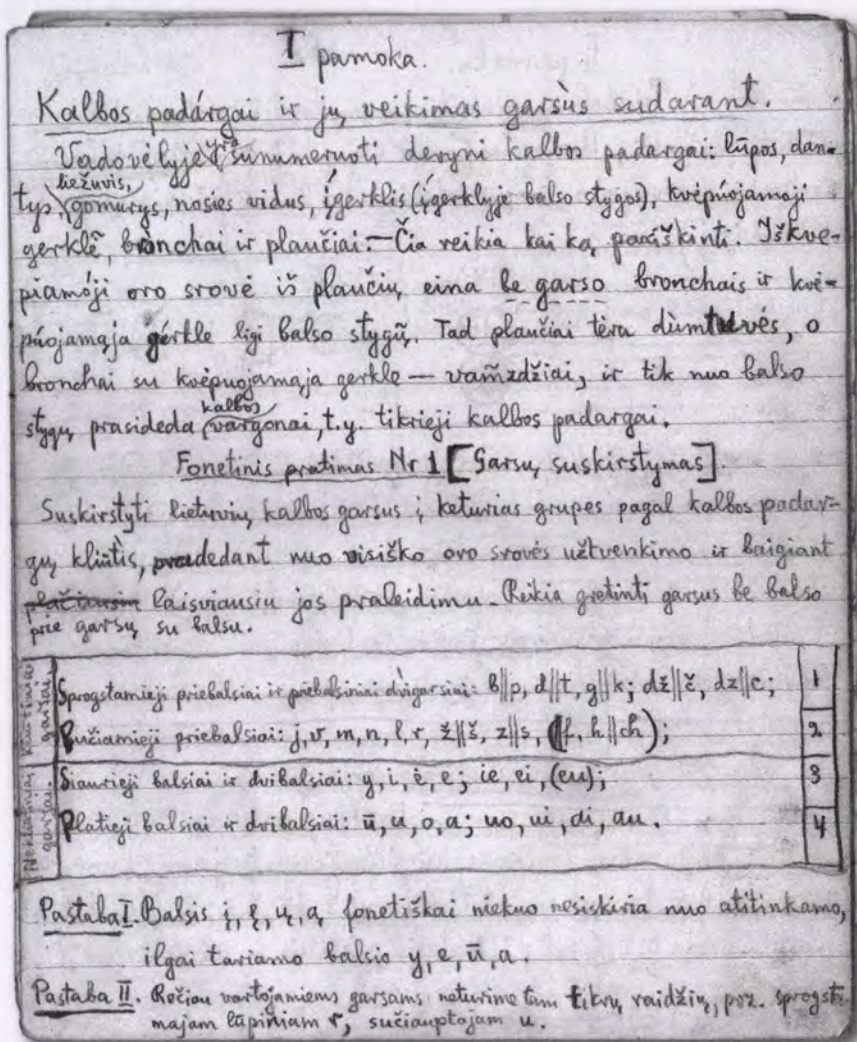 I pamoka.
Kalbos padárgai ir jų veikimas garsùs sudarant.
Vadovėlyje yra sunumeruoti devyni kalbos padargai: lūpos, dan-
tys, liežuvis, gomurys, nosies vidus, įgerklis (įgerklyje balso stygos), kvėpúojamoji
gerklė̃, brònchai ir plaučiai. — Čia reikia kai ką paaiškinti. Iškve-
piamóji oro srovė iš plaučių eina be garso bronchais ir kvė-
púojamąja gérkle ligi balso stygų̃. Tad plaučiai tėra dùmtuvės, o
bronchai su kvėpuojamąja gerkle — vam̃zdžiai, ir tik nuo balso
stygų prasideda kalbos vargonai, t.y. tikrieji kalbos padargai.
Fonetinis pratimas Nr 1 [Garsų suskirstymas].
Suskirstyti lietuvių kalbos garsus į keturias grupes pagal kalbos padar-
gų kliūtis, pradedant nuo visiško oro srovės užtvenkimo ir baigiant
plačiausiu laisviausiu jos praleidimu. Reikia gretinti garsus be balso
prie garsų su balsu.
Kliūtiniai garsai.
Sprogstamieji priebalsiai ir priebalsiniai dvìgarsiai: b||p, d||t, g||k; dž||č, dz||c; 1
Pučiamieji priebalsiai: j, v, m, n, l, r, ž||š, z||s, (f, h||ch); 2
Nekliūtiniai garsai.
Siaurieji balsiai ir dvibalsiai: y, i, ė, e; ie, ei, (eu); 3
Platieji balsiai ir dvibalsiai: ū, u, o, a; uo, ui, ai, au. 4
Pastaba I. Balsis į, ę, ų, ą fonetiškai niekuo nesiskiria nuo atitinkamo,
ilgai tariamo balsio y, e, ū, a.
Pastaba II. Rečiau vartojamiems garsams neturime tam tikrų raidžių, pvz. sprogsta-
majam lūpiniam r, sučiauptajam u.